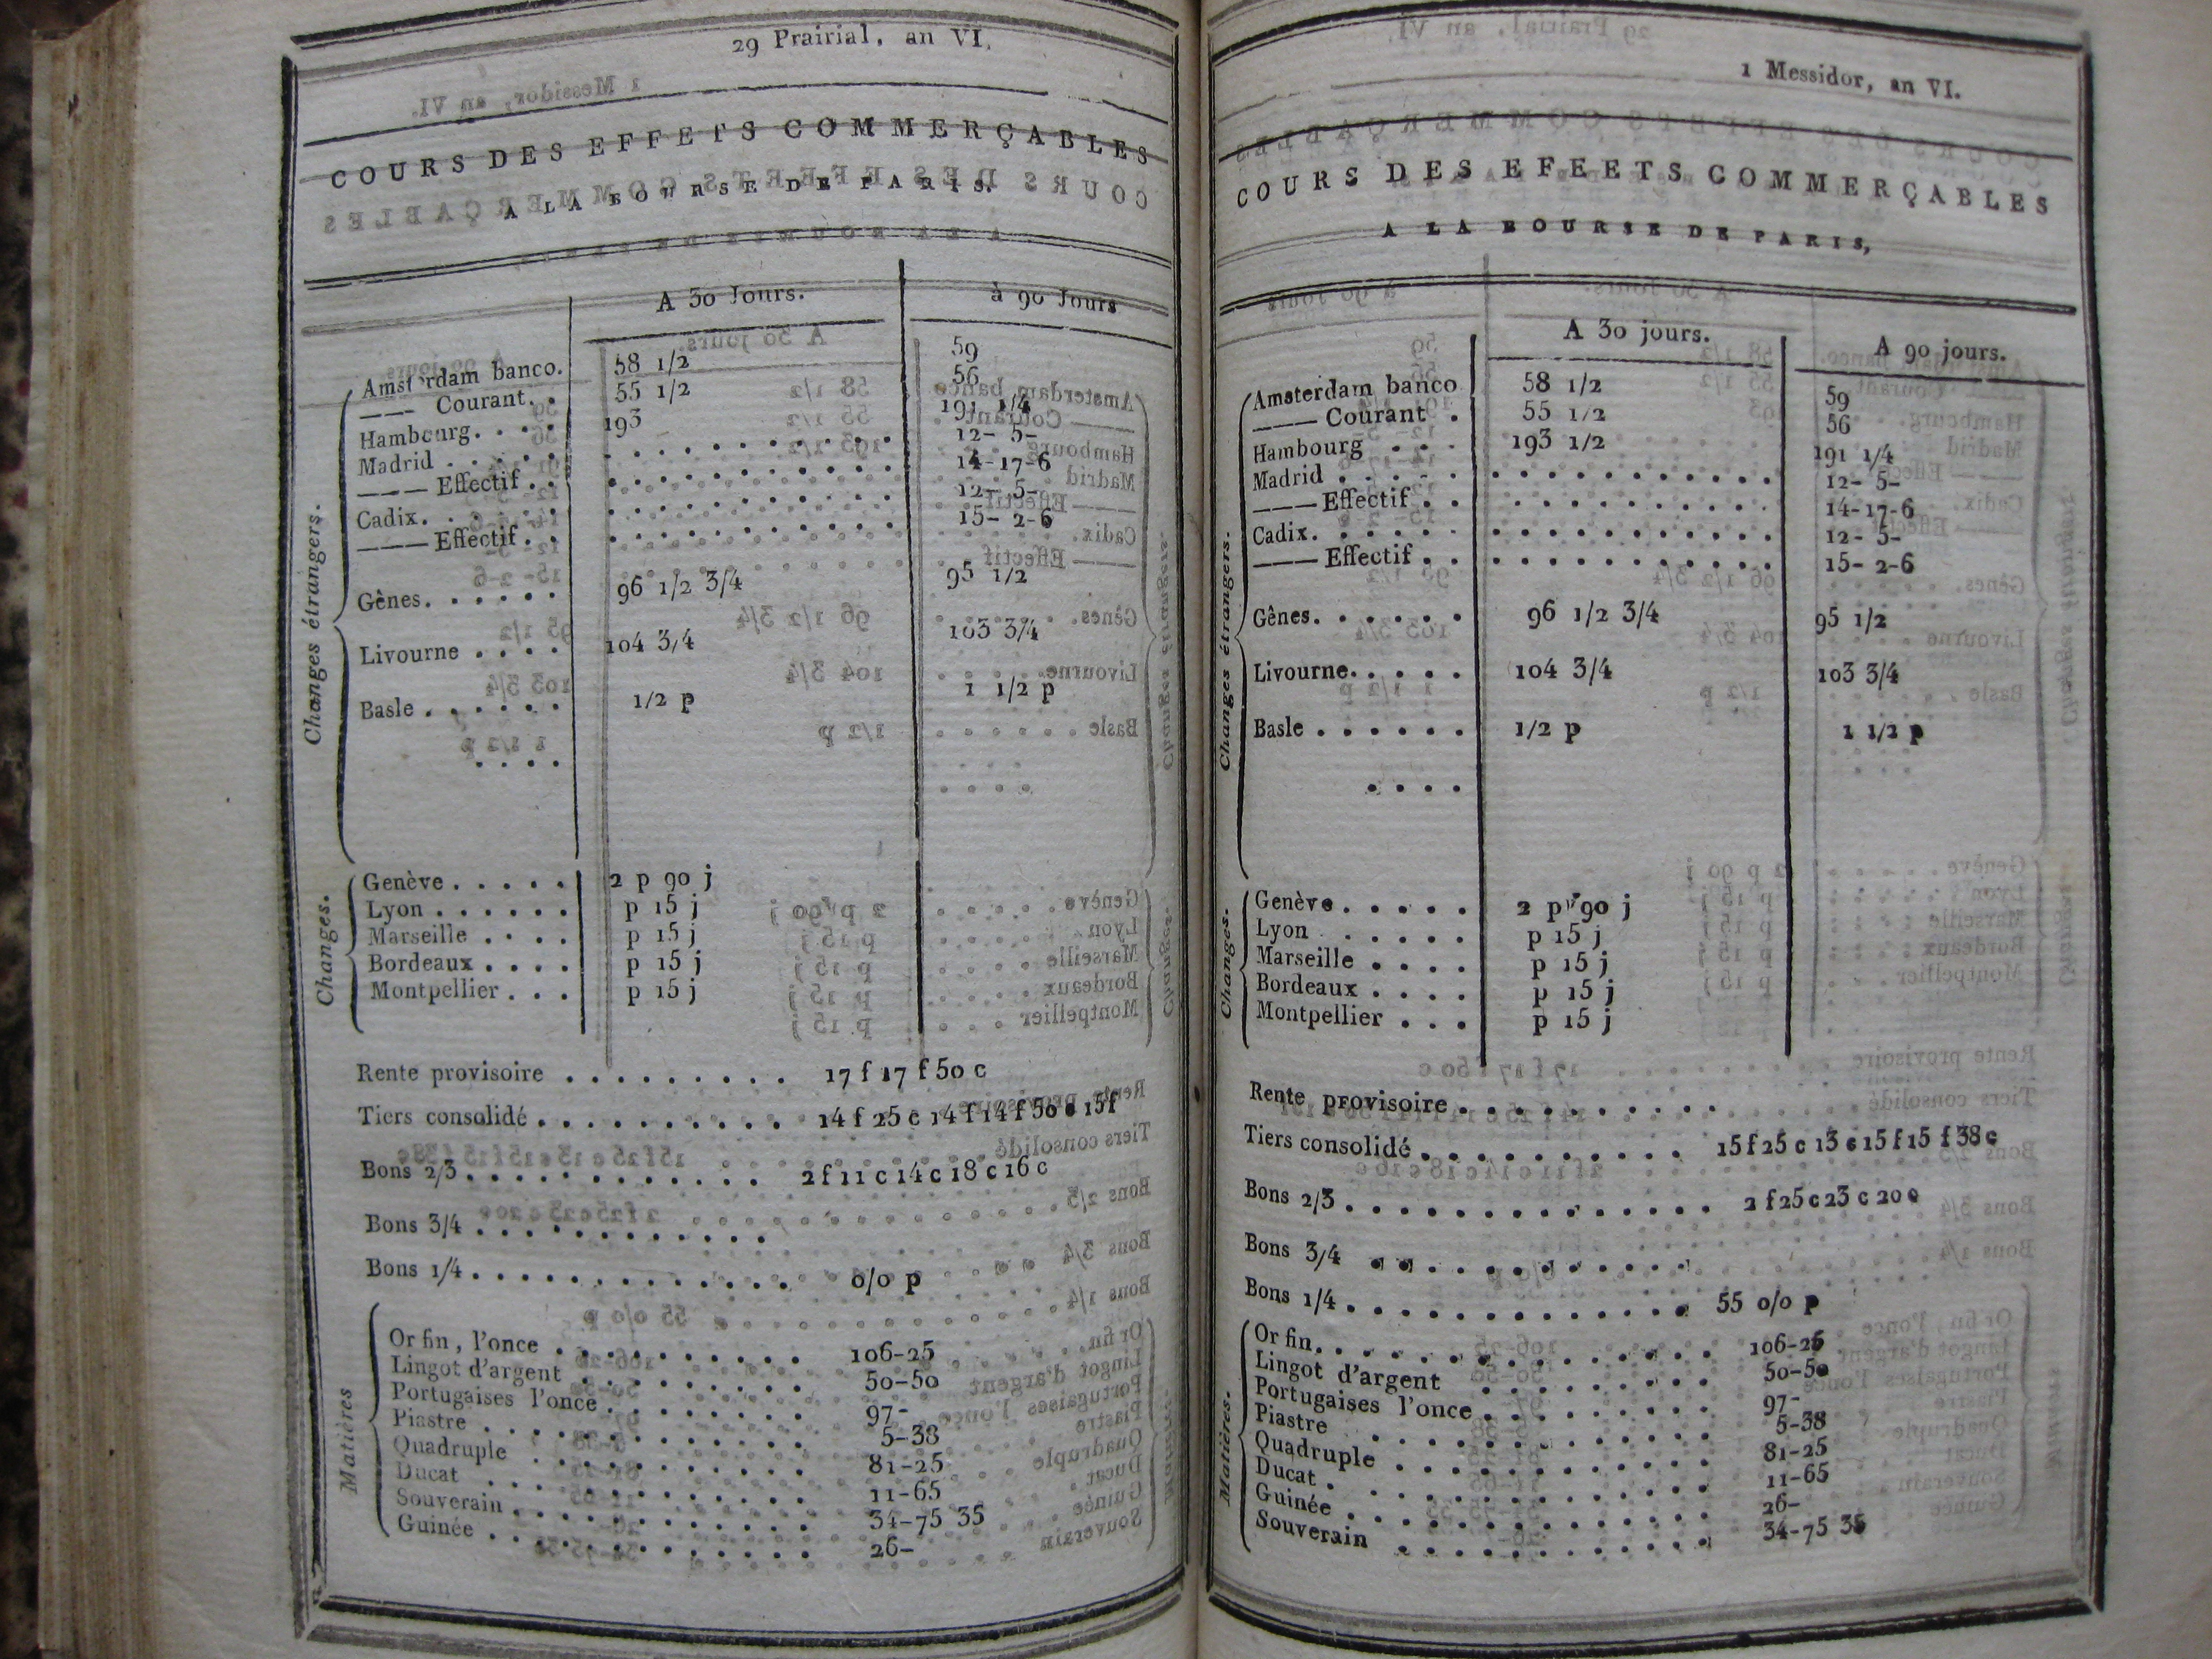 29 Prairial, an VI.
COURS DES EFFETS COMMERÇABLES
A LA BOURSE DE PARIS.
A 30 Jours. à 90 Jours
Changes étrangers.
Amsterdam banco. 58 1/2 59
——— Courant. . 55 1/2 56
Hambourg. . . . 193 191 1/4
Madrid . . . . . 12- 5-
——— Effectif . . 14-17-6
Cadix. . . . . . 12- 5-
——— Effectif . . 15- 2-6
Gênes. . . . . . 96 1/2 3/4 95 1/2
Livourne . . . . 104 3/4 103 3/4
Basle . . . . . . 1/2 p 1 1/2 p
Changes.
Genève . . . . . 2 p 90 j
Lyon . . . . . . p 15 j
Marseille . . . . p 15 j
Bordeaux . . . . p 15 j
Montpellier . . . p 15 j
Rente provisoire . . . . . . . . . 17 f 17 f 50 c
Tiers consolidé . . . . . . . . . . 14 f 25 c 14 f 14 f 50 c 15 f
Bons 2/3 . . . . . . . . . . . . 2 f 11 c 14 c 18 c 16 c
Bons 3/4 . . . . . . . . . . . .
Bons 1/4 . . . . . . . . . . . . . 0/0 p
Matières
Or fin, l'once . . . . . . . . . 106-25
Lingot d'argent . . . . . . . . 50-50
Portugaises l'once . . . . . . . 97-
Piastre . . . . . . . . . . . . 5-38
Quadruple . . . . . . . . . . 81-25
Ducat . . . . . . . . . . . . 11-65
Souverain . . . . . . . . . . . 34-75 35
Guinée . . . . . . . . . . . . 26-
1 Messidor, an VI.
COURS DES EFEETS COMMERÇABLES
A LA BOURSE DE PARIS,
A 30 jours. A 90 jours.
Changes étrangers.
Amsterdam banco 58 1/2 59
——— Courant . 55 1/2 56
Hambourg . . . 193 1/2 191 1/4
Madrid . . . . . 12- 5-
——— Effectif . . 14-17-6
Cadix. . . . . . 12- 5-
——— Effectif . . 15- 2-6
Gênes. . . . . . 96 1/2 3/4 95 1/2
Livourne. . . . . 104 3/4 103 3/4
Basle . . . . . . 1/2 p 1 1/2 p
Changes.
Genève . . . . . 2 p 90 j
Lyon . . . . . p 15 j
Marseille . . . . p 15 j
Bordeaux . . . . p 15 j
Montpellier . . . p 15 j
Rente provisoire . . . . . . . . . .
Tiers consolidé . . . . . . . . . . 15 f 25 c 13 c 15 f 15 f 38 c
Bons 2/3 . . . . . . . . . . . . . . 2 f 25 c 23 c 20 c
Bons 3/4 . . . . . . . . . . . .
Bons 1/4 . . . . . . . . . . . . . 55 0/0 p
Matières.
Or fin. . . . . . . . . . . . . . 106-25
Lingot d'argent . . . . . . . . 50-50
Portugaises l'once . . . . . . . . 97-
Piastre . . . . . . . . . . . . 5-38
Quadruple . . . . . . . . . . . 81-25
Ducat . . . . . . . . . . . . . 11-65
Guinée . . . . . . . . . . . . . 26-
Souverain . . . . . . . . . . . 34-75 35